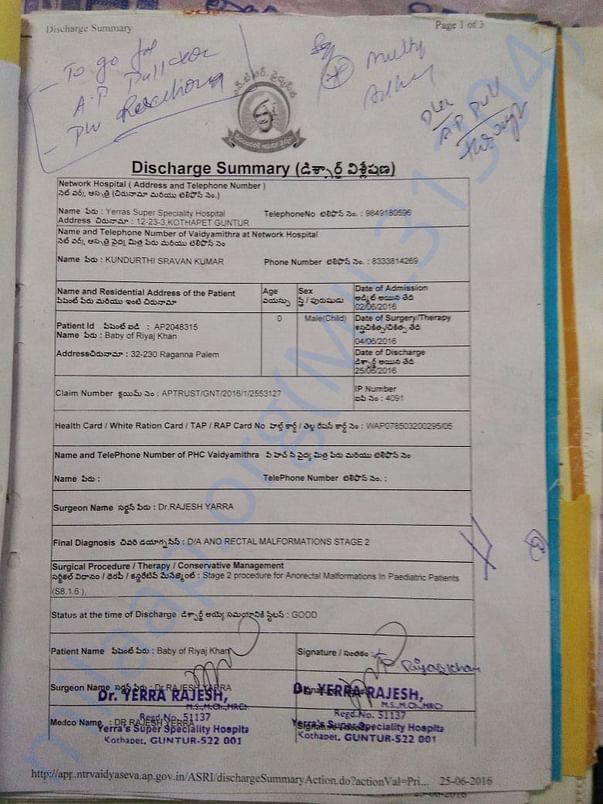 Discharge Summary
Page 1 of 3
To go for
A.P Pullthr
Discharge Summary (డిశ్చార్జ్ విశ్లేషణ)
Network Hospital ( Address and Telephone Number )
నెట్ వర్క్ ఆసుపత్రి (చిరునామా మరియు టెలిఫోన్ నెం.)
Name పేరు : Yerras Super Speciality Hospital
TelephoneNo టెలిఫోన్ నెం. : 9849180596
Address చిరునామా : 12-23-3,KOTHAPET GUNTUR
Name and Telephone Number of Vaidyamithra at Network Hospital
నెట్ వర్క్ ఆసుపత్రి వైద్య మిత్ర పేరు మరియు టెలిఫోన్ నెం
Name పేరు : KUNDURTHI SRAVAN KUMAR
Phone Number టెలిఫోన్ నెం. : 8333814269
Name and Residential Address of the Patient
పేషెంట్ పేరు మరియు ఇంటి చిరునామా
Age
వయస్సు
Sex
స్త్రీ / పురుషుడు
Date of Admission
అడ్మిట్ అయిన తేది
02/06/2016
Patient Id పేషెంట్ ఐడి : AP2048315
Name పేరు : Baby of Riyaj Khan
0
Male(Child)
Date of Surgery/Therapy
శస్త్రచికిత్స/చికిత్స తేది
04/06/2016
Addressచిరునామా : 32-230 Raganna Palem
Date of Discharge
డిశ్చార్జ్ అయిన తేది
25/06/2016
Claim Number క్లెయిమ్ నెం : APTRUST/GNT/2016/1/2553127
IP Number
ఐపి నెం : 4091
Health Card / White Ration Card / TAP / RAP Card No హెల్త్ కార్డ్ / తెల్ల రేషన్ కార్డ్ నెం : WAP078503200295/05
Name and TelePhone Number of PHC Vaidyamithra పి హెచ్ సి వైద్య మిత్ర పేరు మరియు టెలిఫోన్ నెం
Name పేరు :
TelePhone Number టెలిఫోన్ నెం. :
Surgeon Name సర్జన్ పేరు : Dr.RAJESH YARRA
Final Diagnosis చివరి డయాగ్నసిస్ : D/A ANO RECTAL MALFORMATIONS STAGE 2
Surgical Procedure / Therapy / Conservative Management
సర్జికల్ విధానం / థెరపీ / కన్జర్వేటివ్ మేనేజ్మెంట్ : Stage 2 procedure for Anorectal Malformations In Paediatric Patients
(S8.1.6 )
Status at the time of Discharge డిశ్చార్జ్ అయ్యే సమయానికి స్టేటస్ : GOOD
Patient Name పేషెంట్ పేరు : Baby of Riyaj Khan
Signature / సంతకం :
Riyaj khan
Surgeon Name సర్జన్ పేరు : Dr.RAJESH YARRA
Dr. YERRA RAJESH,
M.S.,M.Ch.,MRCI
Regd.No. 51137
Yerra's Super Speciality Hospita
Kothapet, GUNTUR-522 001
Dr. YERRA RAJESH,
M.S.,M.Ch.,MRCI
Regd.No. 51137
Yerra's Super Speciality Hospita
Kothapet, GUNTUR-522 001
Medco Name : DR RAJESH YERRA
http://app.ntrvaidyaseva.ap.gov.in/ASRI/dischargeSummaryAction.do?actionVal=Pri...
25-06-2016